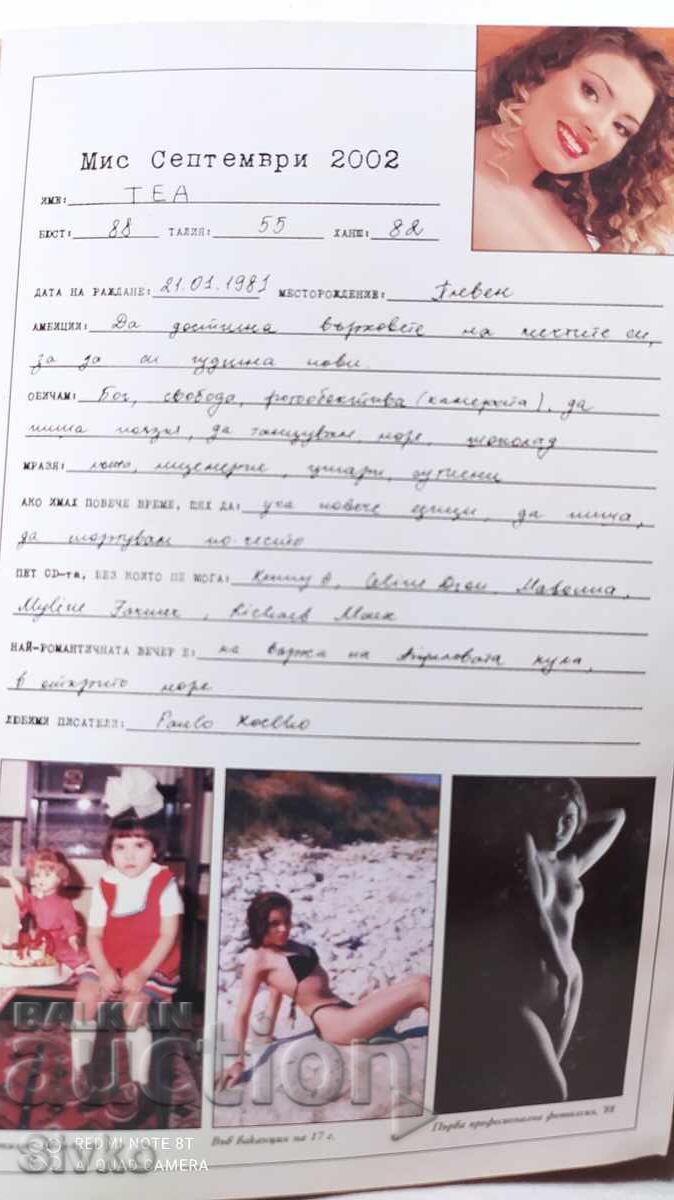 Мис Септември 2002
ИМЕ: ТЕА
БЮСТ: 88 ТАЛИЯ: 55 ХАНШ: 82
ДАТА НА РАЖДАНЕ: 21.01.1981 МЕСТОРОЖДЕНИЕ: Плевен
АМБИЦИИ: Да достигна върховете на мечтите си,
за да си издигна нови.
ОБИЧАМ: Бог, свобода, фотообектива (камерата), да
пиша поезия, да танцувам, море, шоколад
МРАЗЯ: лъжа, лицемерие, цигари,
АКО ИМАХ ПОВЕЧЕ ВРЕМЕ, БИХ ДА: уча повече езици, да пиша,
да спортувам по-често
ПЕТ CD-та, БЕЗ КОИТО НЕ МОГА: Kenny G, Celine Dion, Мадонна,
Mylene Farmer, Richard Marx
НАЙ-РОМАНТИЧНАТА ВЕЧЕР Е: на върха на Айфеловата кула,
в открито море
ЛЮБИМИ ПИСАТЕЛИ: Paulo Коелю
BALKAN
auction
Във ваканция на 17 г.
Първа професионална фотосесия,
REDMI NOTE 8T
AI QUAD CAMERA
Sivko